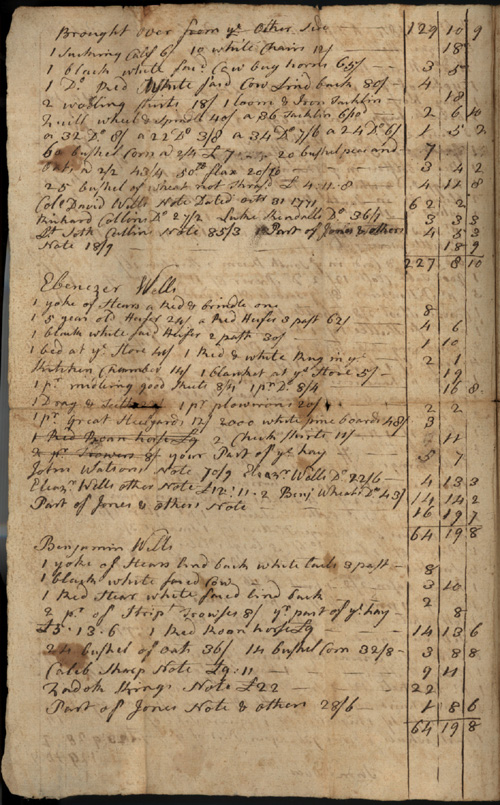 Brought over from ye Other Side 129 10 9
1 Suckering Calf 6/ 10 white Chairs 12/ 18
1 black white faced Cow bag horns 65/ 3 5
1 Do Red White faced Cow lind back 80/ 4
2 woolling Shirts 18/ 1 loom & Iron 18
Quill wheel & Spindle 40/ a 36 6/10 2 6 10
a 32 Do 8/ a 22 Do 3/8 a 34 Do 7/6 a 24 Do 6/ 1 5 2
60 bushel Corn a 2/4 £ 7 20 bushel peas and 7
Oats a 2/2 43/4 50 flax 20/10 3 4 2
25 bushel of wheat not £ 4:11:8 4 11 8
Colo David Wells Note Dated Octr 31 1771 62 2
Richard Collins Do 27/2 Luke Rendalls Do 36/1 3 3 3
Lt Seth Cattlins Note 85/3 Part of Jones & others 4 5 3
Note 18/9 18 9
227 8 10
Ebenezer Wells
1 yoke of Stears a Red & brindle one 8
1 5 year old Heifer 24/ a Red Heifer 3 past 62/ 4 6
1 black white faced Heifer 2 past 30/ 1 10
1 bed at ye Store 41/ 1 Red & white Rug in ye 2 1
Kitchen Chamber 14/ 1 blanket at ye Store 5/ 19
1 pr midling good Sheets 8/4 1 pr Do 8/4 16 8
1 Drag & 1 pr plowirons 20/ 2 2
1 pr great Steelyards 12/ 2000 white pine boards 48/ 3
1 Red Roan horse £9 2 Check Shirts 11/ 11
2 pr Trowsers 8/ your Part of ye hay 5 7
John Watsons Note 70/9 Eleazr Wells Do 22/6 4 13 3
Eleazr Wells other Note £12:11:2 Benj Wheats Do 43/ 14 14 2
Part of Jones & others Note 16 19 7
64 19 8
Benjamin Wells
1 yoke of Stears lind back white tails 3 past 8
1 black white faced Cow 3 10
1 Red Stear white faced lind back 2
2 pr of Stript Trowses 8/ yr part of ye hay 8
£5:13:6 1 Red Roan horse £9 14 13 6
24 bushel of oats 36/ 14 bushel Corn 32/8 3 8 8
Caleb Sharp Note £9:11 9 11
Zadok Note £22 22
Part of Jones Note & others 28/6 1 8 6
64 19 8